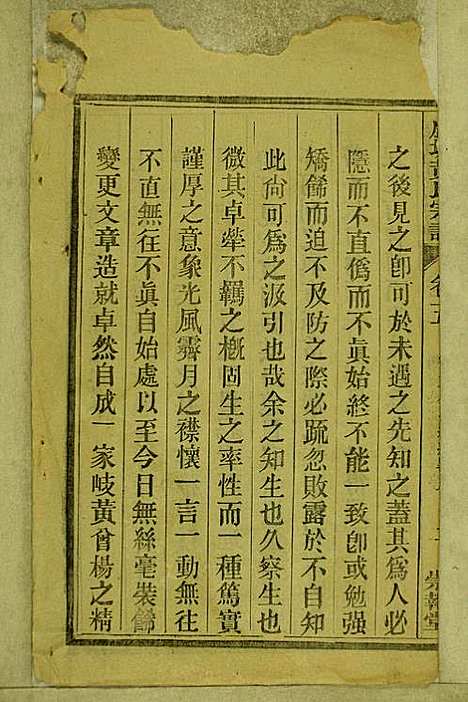 黃氏宗譜
卷五
之後見之卽可於未遇之先知之蓋其爲人必
隱而不直僞而不眞始終不能一致卽或勉强
矯餙而迫不及防之際必疏忽敗露於不自知
此尙可爲之汲引也哉余之知生也久察生也
微其卓犖不羈之槪固生之率性而一種篤實
謹厚之意象光風霽月之襟懷一言一動無往
不直無在不眞自始處以至今日無絲毫裝餙
變更文章造就卓然自成一家岐黃曾楊之精